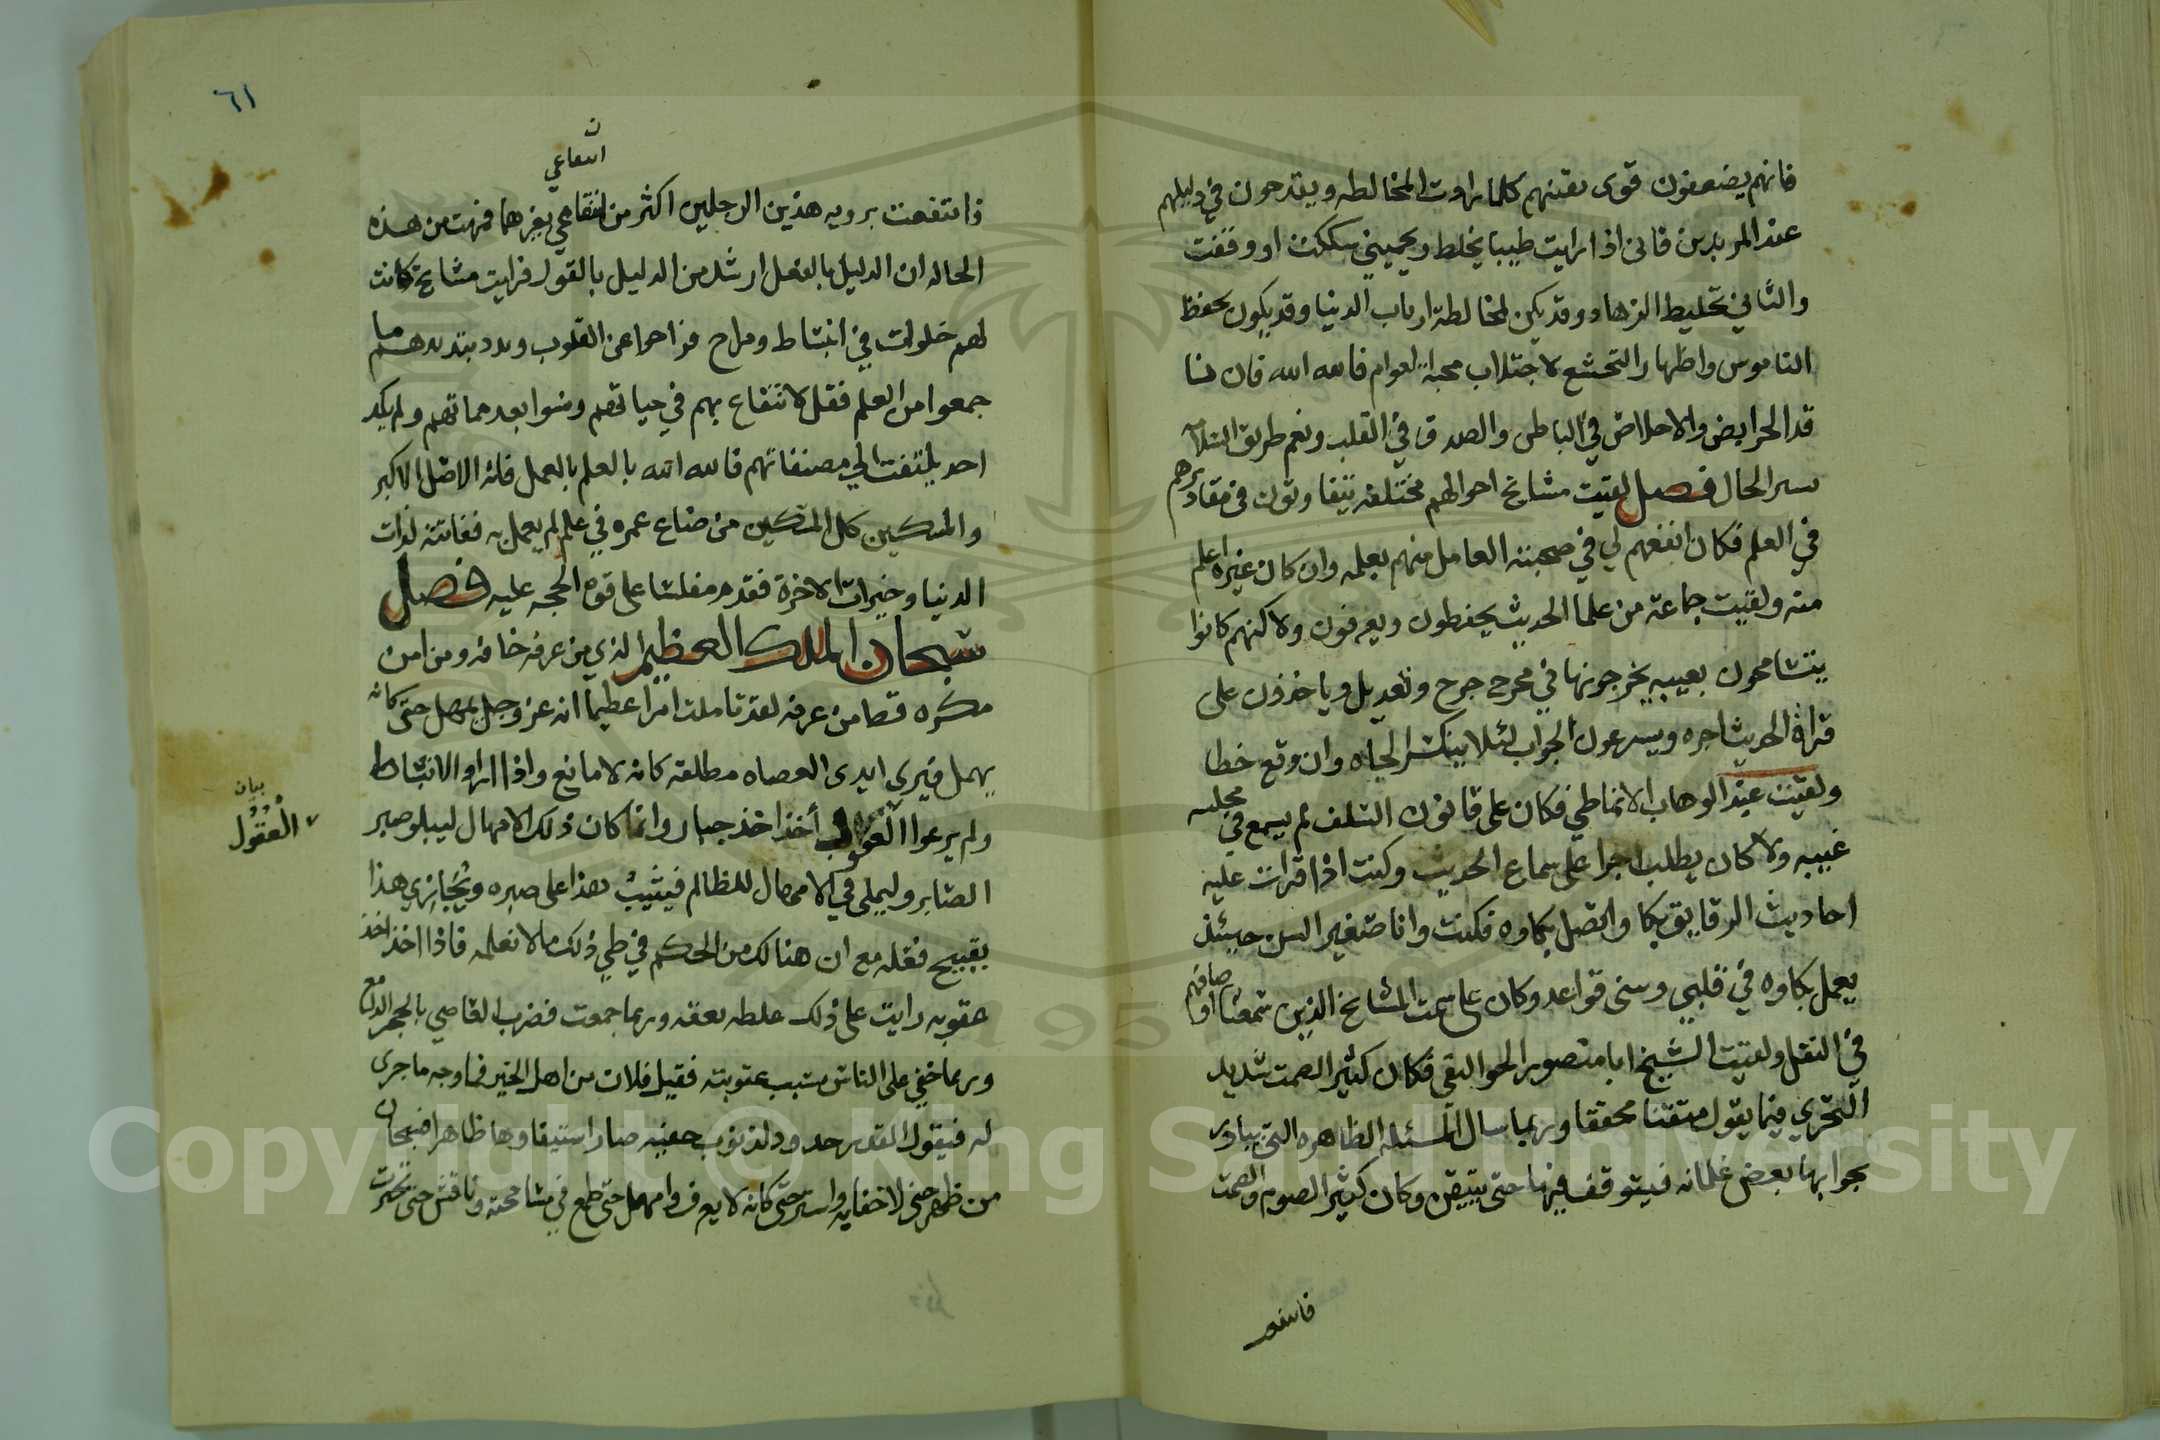 فانهم يضعفون قوى يقينهم كلما راوت المخالطه ويقدحون في دليلهم
عند المريدين فاني اذا رايت طبيبا يخلط ويحميني شككت او وقفت
والثاني تخليط الزهاد وقد يكن لمخالطة ارباب الدنيا وقد يكون بحفظ
الناموس واظهار التخشع لاجتلاب محبة العوام فالله الله فان لنا
قد الحرايض والاخلاص في الباطن والصدق في القلب ونعم طريق السلامه
ستر الحال فصل لقيت مشايخ احوالهم مختلفه يتفاوتون في مقاديرهم
في العلم فكان انفعهم لي في صحبته العامل منهم بعلمه وان كان غيره اعلم
منه ولقيت جماعة من علما الحديث يحفظون ويعرفون ولاكنهم كانوا
يتسامحون بغيبه يخرجونها في مخرج جرح وتعديل وياخذون على
قراة الحديث اجره ويسرعون الجواب لئلا ينكسر الجاه وان وقع خطا
ولقيت عبد الوهاب الانماطي فكان على قانون السلف لم يسمع في مجلسه
غيبه ولا كان يطلب اجرا على سماع الحديث وكنت اذا قرات عليه
احاديث الرقايق بكا واتصل بكاوه فكنت وانا صغير السن حينئذ
يعمل بكاوه في قلبي وسنى قواعد وكان على سمت المشايخ الذين سمعنا اوصافهم
في النقل ولقيت الشيخ ابا منصور الجواليقي فكان كثير الصمت شديد
التحري فيما يقول متقنا محققا وربما سال المسئله الظاهره التي يبادر
بجوابها بعض غلمانه فيتوقف فيها حتى يتيقن وكان كثير الصوم والصمت
فانتفعت
٦١
انتفاعي ن
فانتفعت برويه هذين الرجلين اكثر من انتفاعي بغيرهما ففهمت من هذه
الحاله ان الدليل بالفعل ارشد من الدليل بالقول فرايت مشايخ كانت
لهم خلوات في انبساط ومزاح فراحوا عن القلوب وبدد تبديدهم ما
جمعوا من العلم فقل الانتفاع بهم في حياتهم ونسوا بعد مماتهم ولم يكد
احد يلتفت الى مصنفاتهم فالله الله بالعلم بالعمل فانه الاصل الاكبر
والمسكين كل المسكين من ضاع عمره في علم لم يعمل به ففاتته لذات
الدنيا وخيرات الاخرة فقدم مفلسا على قوة الحجه عليه فصل
سبحان الملك العظيم الذي من عرفه خافه ومن امن
مكره قط ما من عرفه لقد تاملت امرا عظيما انه عز وجل يمهل حتى كانه
يهمل فيرى ايدي العصاه مطلقه كانه لا مانع واذا ازاد الانبساط
ولم يرعوا العقول أخذ اخذ جبار وانما كان ذلك الامهال ليبلو صبر
الصابر وليملي في الامهال للظالم فيثيب هذا على صبره ويُجَازي هذا
بقبيح فعله مع ان هنالك من الحكم في طي ذلك ما لا نعلمه فاذا اخذ اخذ
عقوبه رايت على ذلك غلطه بعقه وربما جمعت فضرب القاصي بالحجر الدامغ
وربما خفي على الناس سبب عقوبته فقيل فلان من اهل الخير فما وجه ما جرى
له فيقول القدر حدود لذنوب خفيه صار استيفاوها ظاهرا فسبحان
من ظهر حتى لا خفا به واستتر حتى كانه لا يعرف وامهل حتى طمع في مسامحته وناقش حتى تحيرت
بيان
العقول
Copyright © King Saud University
1957